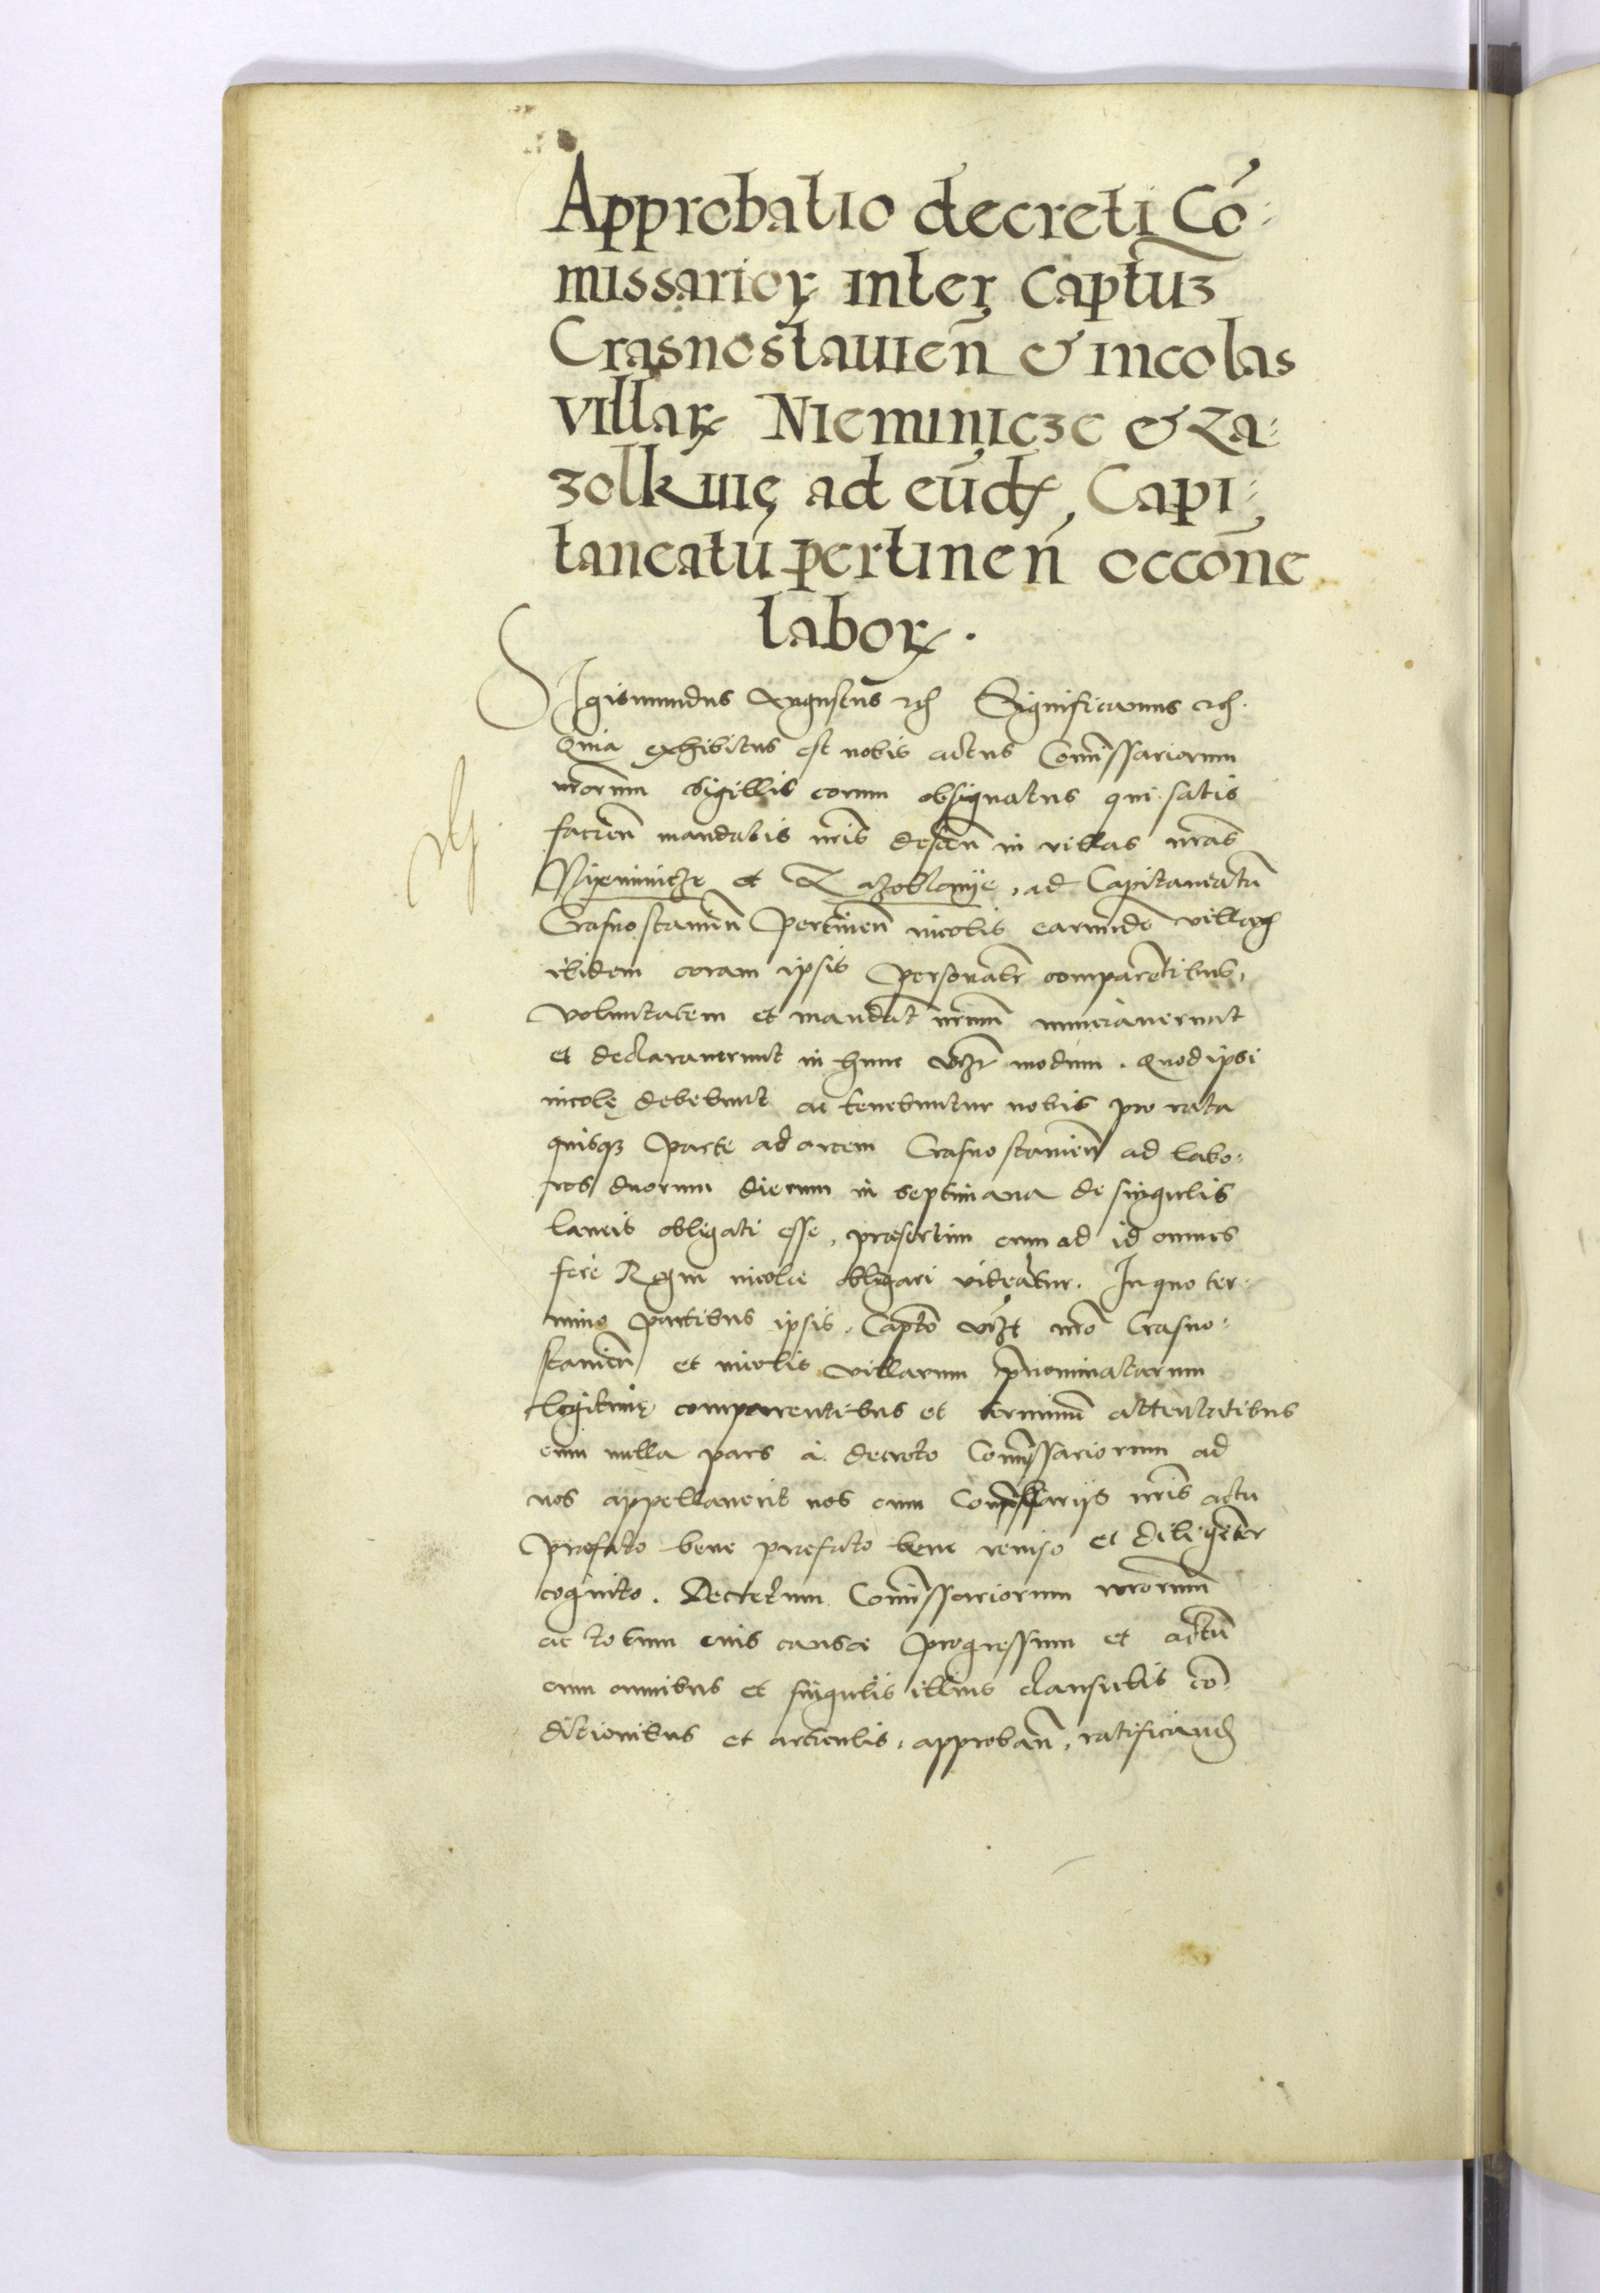 Approbatio decreti Cō
missarioꝝ inter Captuꝫ
Crasnostauieñ & incolas
villaꝝ Nieminicze & Za
zolkwię ad eūdē Capi
taneatū pertineñ occōne
laboꝝ.
Sigismundus Augustus etc Significamus etc.
Quia exhibitus est nobis actus Com̄issariorum
nr̄orum sigillis eorum obsignatus qui satis
facieñ mandatis nr̄is desceñ in villas nr̄as
et ad Capitaneatū
Crasnostauieñ pertineñ incolis earundē villaꝝ
ibidem coram ipsis personalr̄ comparētibus,
voluntatem et mandat̄ nr̄um nunciauerunt
et declarauerunt in hunc modum. Quod ipsi
incolę debebunt ac tenebuntur nobis pro rata
quisqꝫ parte ad arcem Crasnostauieñ ad labo
res duorum dierum in septimana de singulis
laneis obligati esse, praesertim cum ad id omnes
fere Regni incolae obligari videātur. In quo ter
mino partibus ipsis, Captō vizt nr̄o Crasno
stauieñ et incolis villarum p̄nominatarum
legitimę comparentibus et terminū attentātibus
cum nulla pars a decreto Com̄issariorum ad
nos appellauerit nos cum Com̄issarijs nr̄is actu
praefato bene praefato bene reuiso et diligēter
cognito. Decretum Com̄issariorum nr̄orum
ac totum eius causae progressum et actū
cum omnibus et singulis illius clausulis cō
ditionibus et articulis, approbañ, ratificand